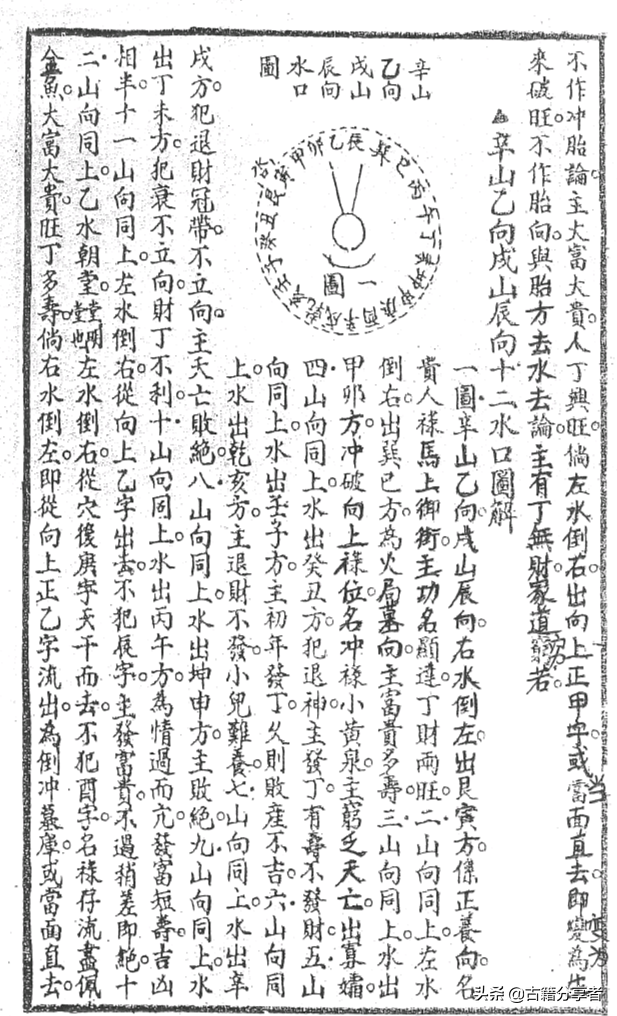 不作冲胎論主大富大貴人丁興旺倘左水倒右出向上正甲字或當面直去即變為生
來破旺不作胎向與胎方去水去論主有丁無財家道窮若
辛山乙向戌山辰向十二水口圖解
一圖辛山乙向戌山辰向右水倒左出艮寅方係正養向名
貴人祿馬上御街主功名顯達丁財兩旺二山向同上左水
倒右出巽巳方為火局墓向主富貴多壽三山向同上水出
甲卯方冲破向上祿位名冲祿小黃泉主窮乏夭亡出寡孀
四山向同上水出癸丑方犯退神主發丁有壽不發財五山
向同上水出壬子方主初年發丁久則敗產不吉六山向同
上水出乾亥方主退財不發小兒難養七山向同上水出辛
戌方犯退財冠帶不立向主夭亡敗絕八山向同上水出坤申方主敗絕九山向同上水
出丁未方犯衰不立向財丁不利十山向同上水出丙午方為情過而亢發富短壽吉凶
相半十一山向同上左水倒右從向上乙字出去不犯辰字主發富貴不過稍差即絕十
二山向同上乙水朝堂堂明堂也左水倒右從穴後庚字天干而去不犯酉字名祿存流盡佩
金魚大富大貴旺丁多壽倘右水倒左即從向上正乙字流出為倒冲墓庫或當面直去
辛山
乙向
戌山
辰向
水口
圖
甲卯乙辰巽巳丙午丁未坤申庚酉辛戌乾亥壬子癸丑艮寅
一圖
窮
当
变为
头条 @古籍分享者